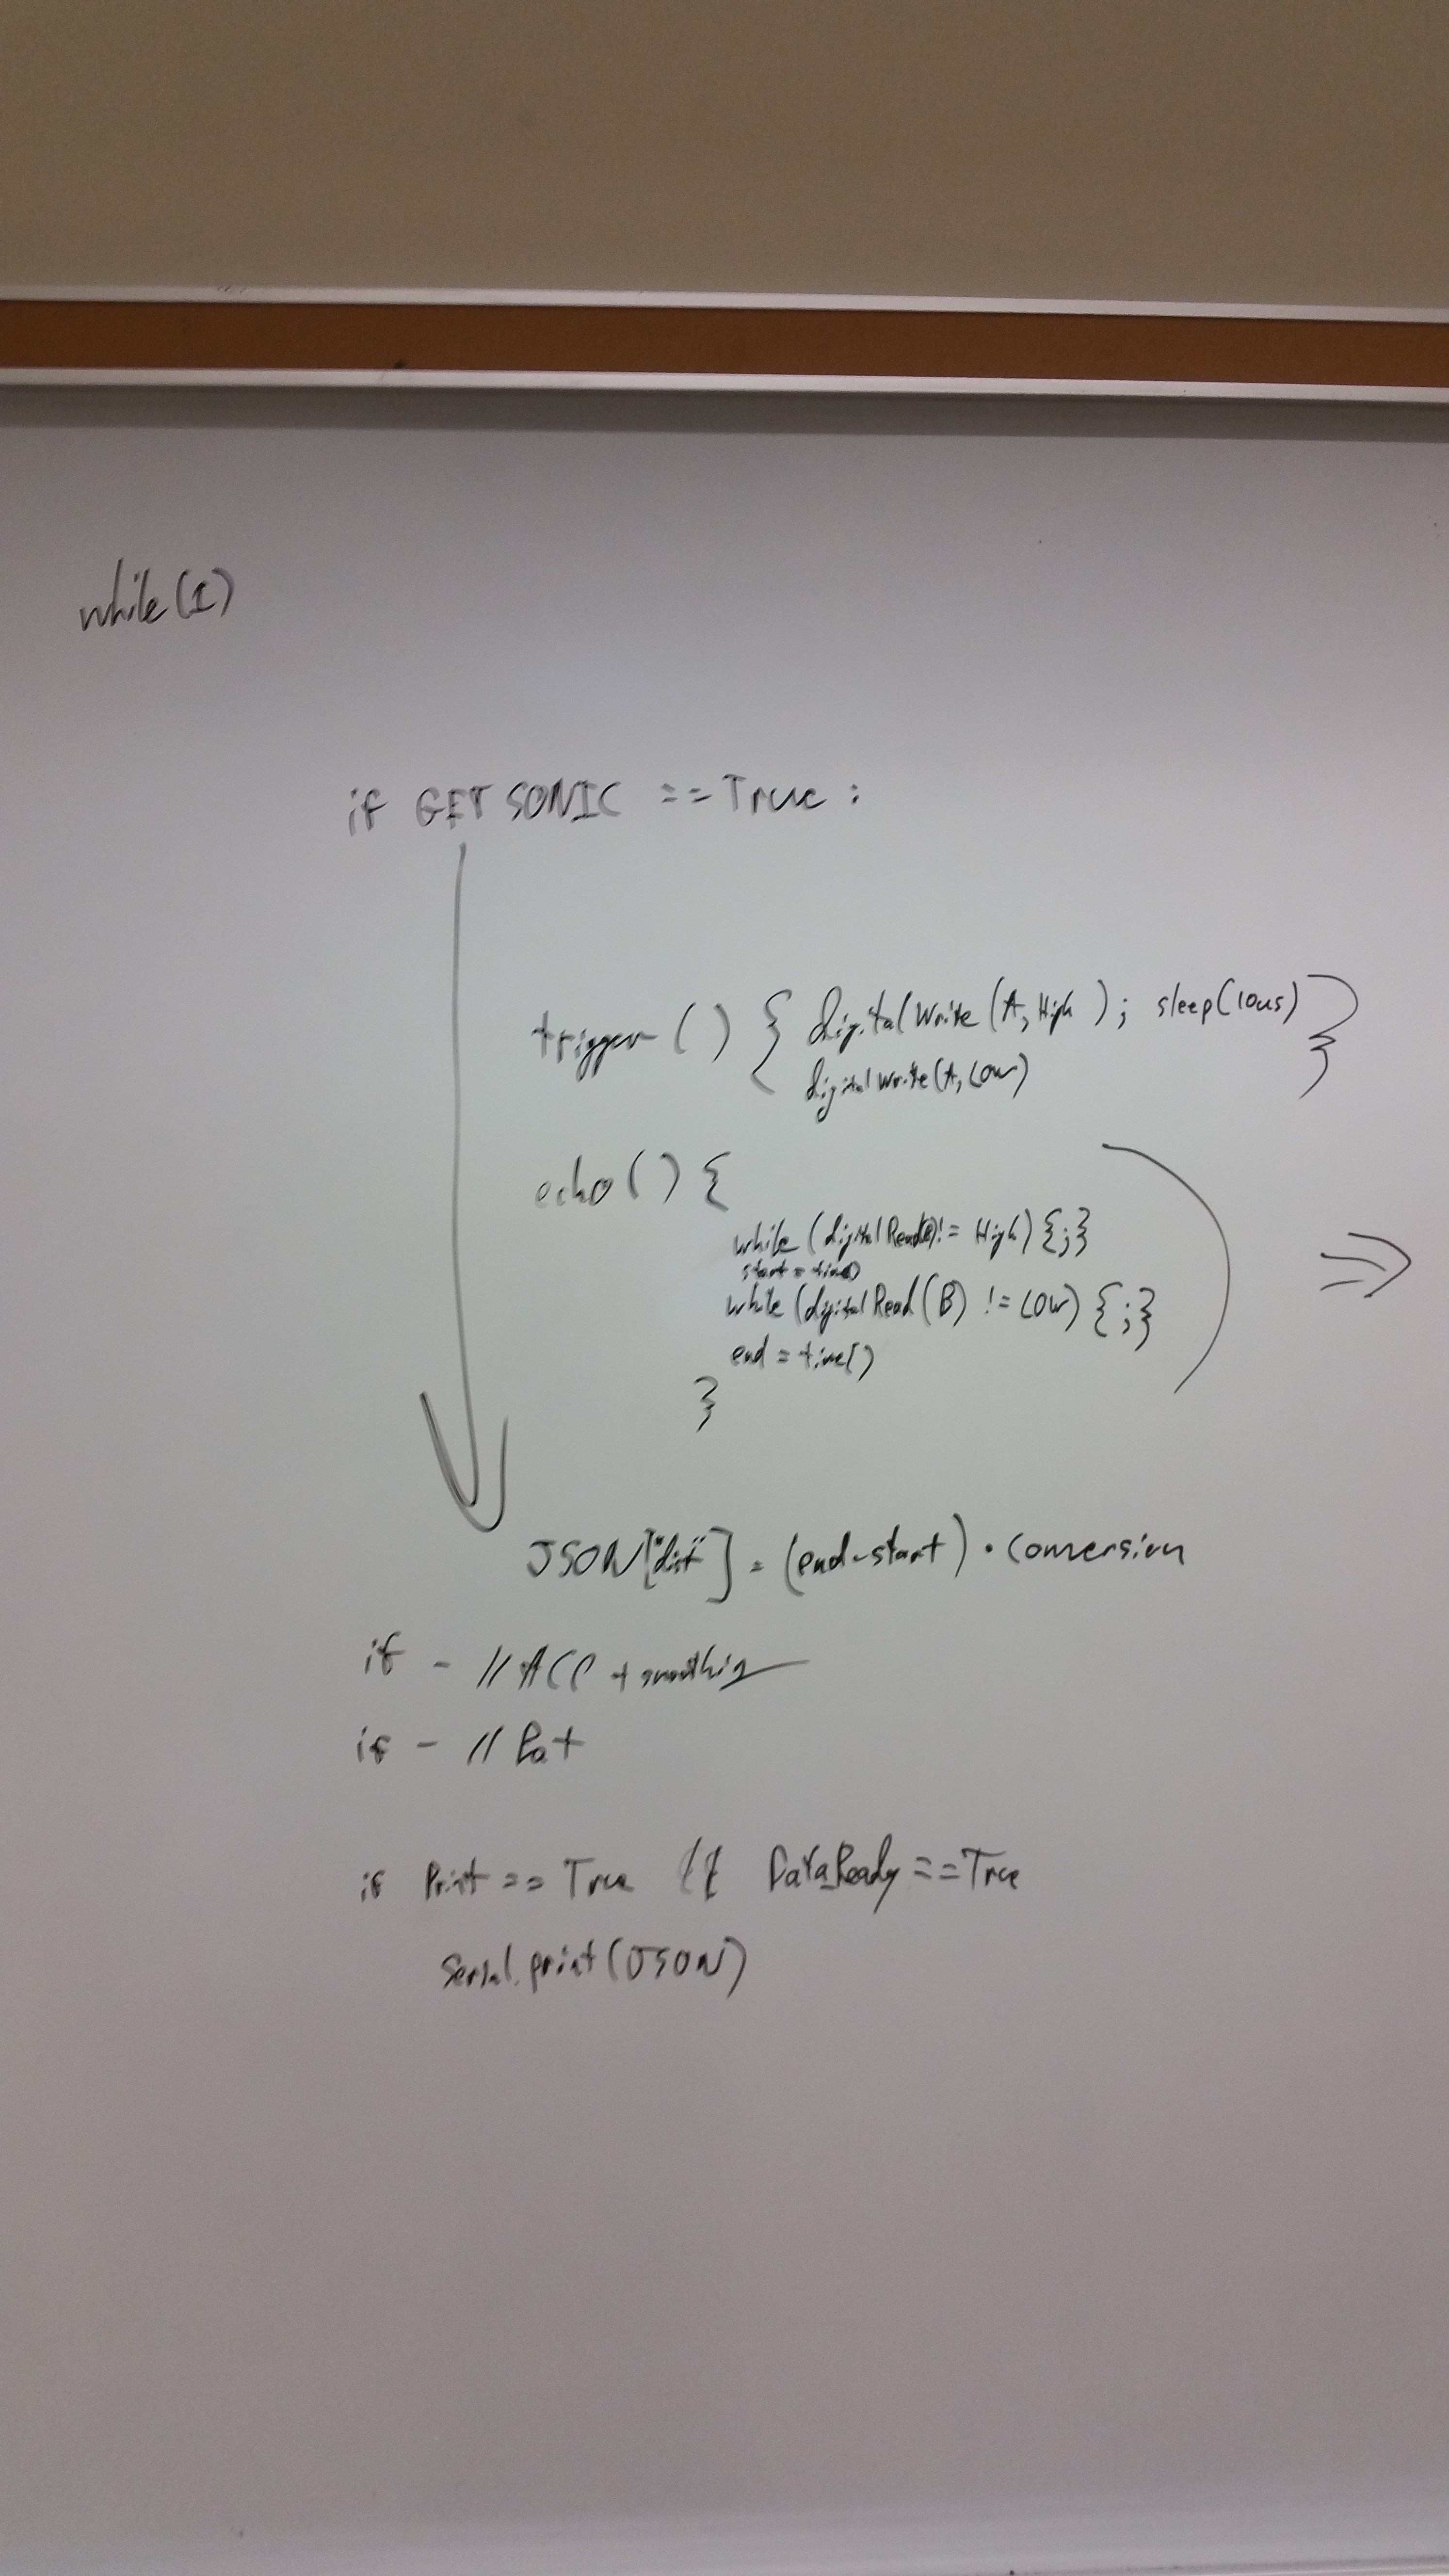 while(1)
if GET SONIC == True :
trigger ( ) { digitalWrite (A, High ) ; sleep(10us)
digitalWrite(A, LOW) }
echo ( ) {
while (digitalRead(B) != High) {;}
start = time()
while (digitalRead (B) != LOW) {;}
end = time()
}
JSON["dist"] = (end-start) • conversion
if - // ACC + smoothing
if - // Pot
if Print == True && Data_Ready == True
Serial.print (JSON)